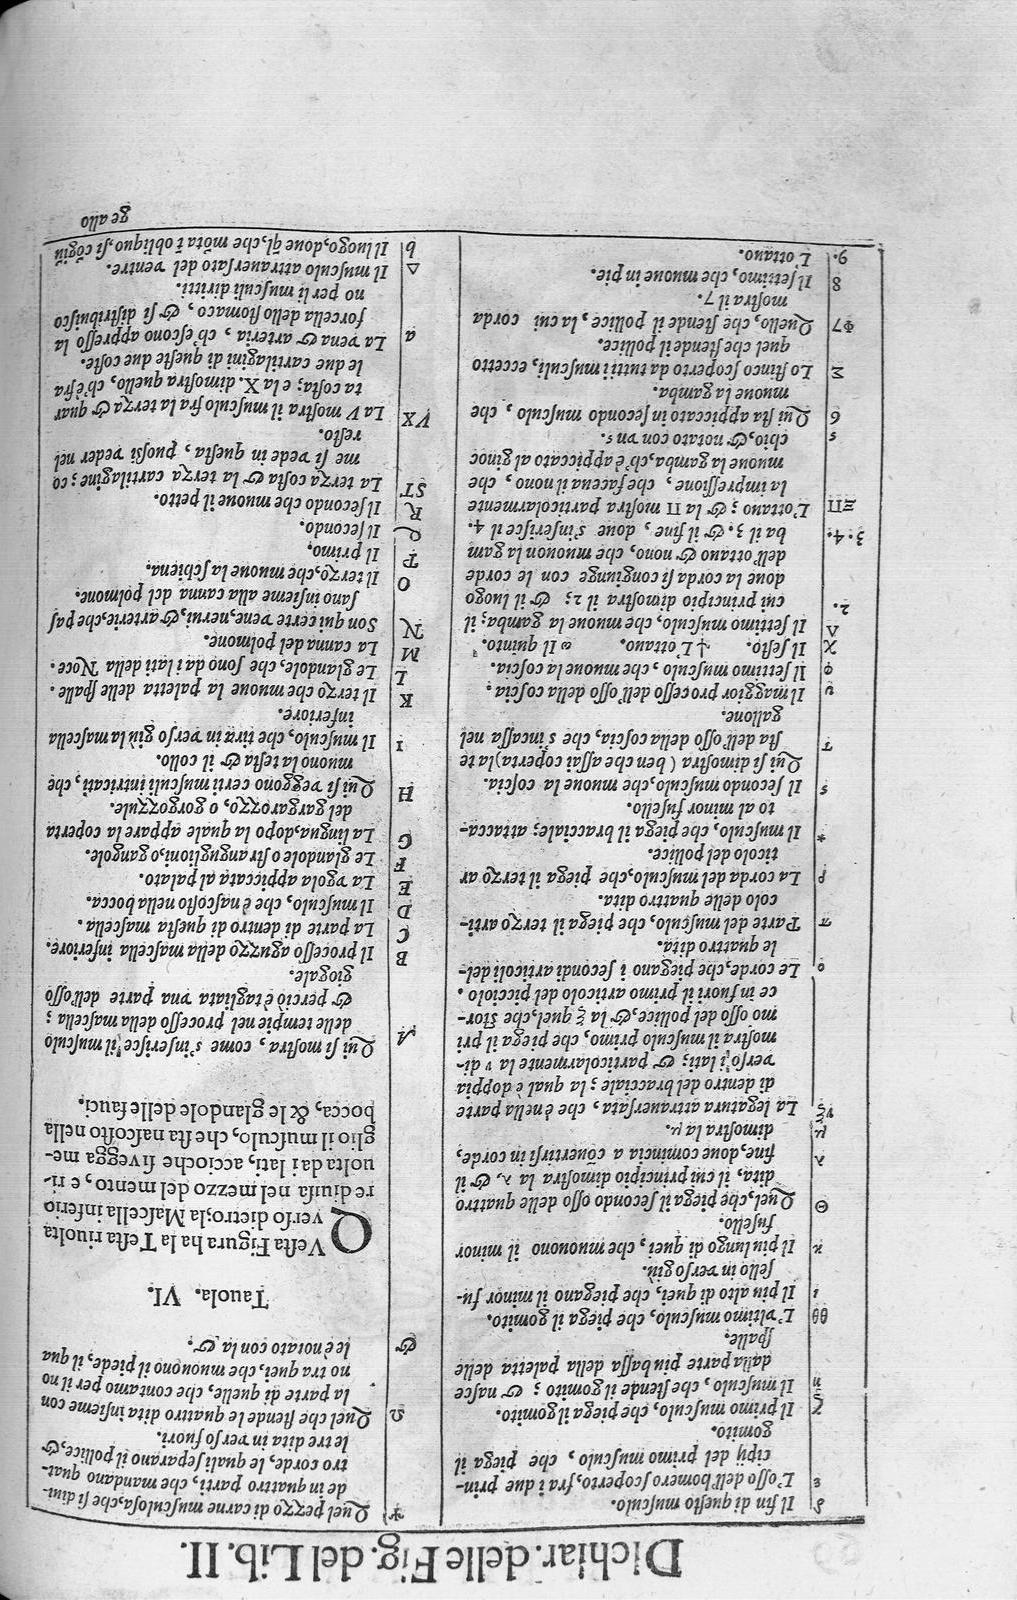 Dichiar. delle Fig. del Lib. II.
δ Il fin di queſto muſculo.
ε L'oſſo dell'homero ſcoperto, fra i due prin-
cipij del primo muſculo, che piega il
gomito.
ζ Il primo muſculo, che piega il gomito.
η Il muſculo, che ſtende il gomito; & naſce
dalla parte piu baſſa della paletta delle
ſpalle.
θθ L'vltimo muſculo, che piega il gomito.
ι Il piu alto di quei, che piegano il minor fu-
ſello in verſo giù.
κ Il piu lungo di quei, che muouono il minor
fuſello.
Θ Quel, che piega il ſecondo oſſo delle quattro
dita, il cui principio dimoſtra la λ, & il
λ fine, doue comincia a cõuertirſi in corde,
μ dimoſtra la μ.
νξ La legatura attrauerſata, che è nella parte
di dentro del bracciale; la qual è doppia
verſo i lati; & particolarmente la ν di-
moſtra il muſculo primo, che piega il pri
mo oſſo del pollice, & la ξ quel, che ſtor-
ce in fuori il primo articolo del picciolo.
ο Le corde, che piegano i ſecondi articoli del-
le quattro dita.
π Parte del muſculo, che piega il terzo arti-
colo delle quattro dita.
ρ La corda del muſculo, che piega il terzo ar
ticolo del pollice.
* Il muſculo, che piega il bracciale; attacca-
to al minor fuſello.
ς Il ſecondo muſculo, che muoue la coſcia.
τ Qui ſi dimoſtra (ben che aſſai coperta) la te
ſta dell'oſſo della coſcia, che s'incaſſa nel
gallone.
υ Il maggior proceſſo dell'oſſo della coſcia.
φ Il ſettimo muſculo, che muoue la coſcia.
χ Il ſeſto. ψ L'ottano. ω Il quinto.
Λ Il ſettimo muſculo, che muoue la gamba; il
2. cui principio dimoſtra il 2; & il luogo
doue la corda ſi congiunge con le corde
dell'ottano & nono, che muouon la gam
3. 4. ba il 3. & il fine, doue s'inſeriſce il 4.
ΞΠ L'ottano; & la Π moſtra particolarmente
la impreſſione, che faceua il nono, che
muoue la gamba, ch'è appiccato al ginoc
5 chio, & notato con vn 5.
6 Qui ſta appiccato in ſecondo muſculo, che
muoue la gamba.
Σ Lo ſtinco ſcoperto da tutti i muſculi, eccetto
quel che ſtende il pollice.
Φ7 Quello, che ſtende il pollice, la cui corda
moſtra il 7.
8 Il ſettimo, che muoue in pie.
9. L'ottano.
Ψ Quel pezzo di carne muſculoſa, che ſi diui-
de in quattro parti, che mandano quat-
tro corde, le quali ſeparano il pollice, &
le tre dita in verſo fuori.
Ω Quel che ſtende le quattro dita inſieme con
la parte di quelle, che contamo per il no
no tra quei, che muouono il piede, il qua
& le è notato con la &.
Tauola. VI.
QVeſta Figura ha la Teſta riuolta
verſo dietro, la Maſcella inferio
re diuiſa nel mezzo del mento, e ri-
uolta dai lati, accioche ſi vegga me-
glio il muſculo, che ſta naſcoſto nella
bocca, & le glandole delle fauci.
A Qui ſi moſtra, come s'inſeriſce il muſculo
delle tempie nel proceſſo della maſcella;
& perciò è tagliata vna parte dell'oſſo
giogale.
B Il proceſſo aguzzo della maſcella inferiore.
C La parte di dentro di queſta maſcella.
D Il muſculo, che è naſcoſto nella bocca.
E La vgola appiccata al palato.
F Le glandole o ſtranguglioni, o gangole.
G La lingua, dopo la quale appare la coperta
del gargarozzo, o gorgozzule.
H Qui ſi veggono certi muſculi intricati, che
muono la teſta & il collo.
I Il muſculo, che tira in verſo giù la maſcella
inferiore.
K Il terzo che muoue la paletta delle ſpalle.
L Le glandole, che ſono da i lati della Noce.
M La canna del polmone.
N Son qui certe vene, nerui, & arterie, che paſ
ſano inſieme alla canna del polmone.
O Il terzo, che muoue la ſchiena.
P Il primo.
Q Il ſecondo.
R Il ſecondo che muoue il petto.
ST La terza coſta & la terza cartilagine; co
me ſi vede in queſta, puoſsi veder nel
reſto.
VX La V moſtra il muſculo fra la terza & quar
ta coſta; e la X. dimoſtra quello, ch'è fra
le due cartilagini di queſte due coſte.
a La vena & arteria, ch'eſcono appreſſo la
forcella dello ſtomaco, & ſi diſtribuiſco
no per li muſculi diritti.
Δ Il muſculo attrauerſato del ventre.
b Il luogo, doue q̃l, che mõta ĩ obliquo, ſi cõgiũ
ge allo